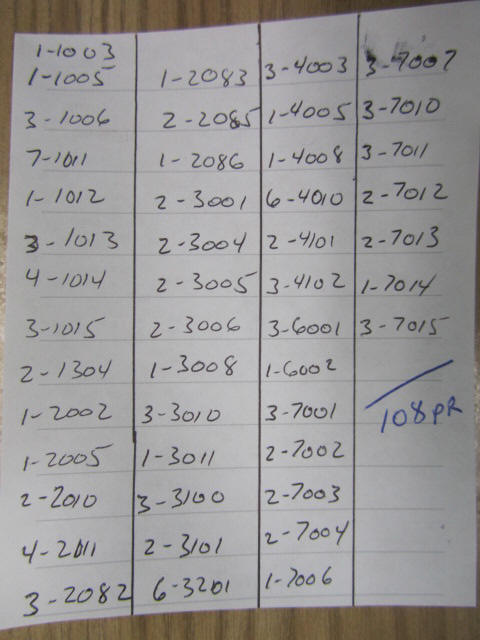 1-1003
1-1005
3-1006
7-1011
1-1012
3-1013
4-1014
3-1015
2-1304
1-2002
1-2005
2-2010
4-2011
3-2082
1-2083
2-2085
1-2086
2-3001
2-3004
2-3005
2-3006
1-3008
3-3010
1-3011
3-3100
2-3101
6-3201
3-4003
1-4005
1-4008
6-4010
2-4101
3-4102
3-6001
1-6002
3-7001
2-7002
2-7003
2-7004
1-7006
3-7007
3-7010
3-7011
2-7012
2-7013
1-7014
3-7015
108 PR